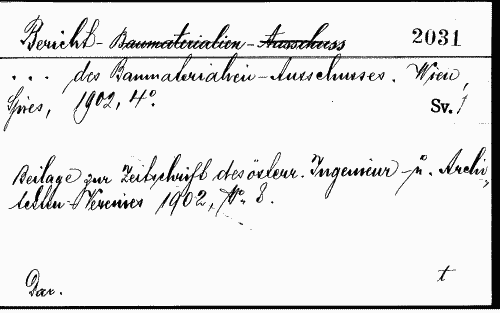 Bericht - Baumaterialien - Ausschuss 2031
. . . des Baumaterialien - Ausschusses. Wien,
Spies, 1902, 4°. Sv. 1
Beilage zur Zeitschrift des österr. Ingenieur - u. Archi-
tekten-Vereines 1902, No. 8.
Dar. t